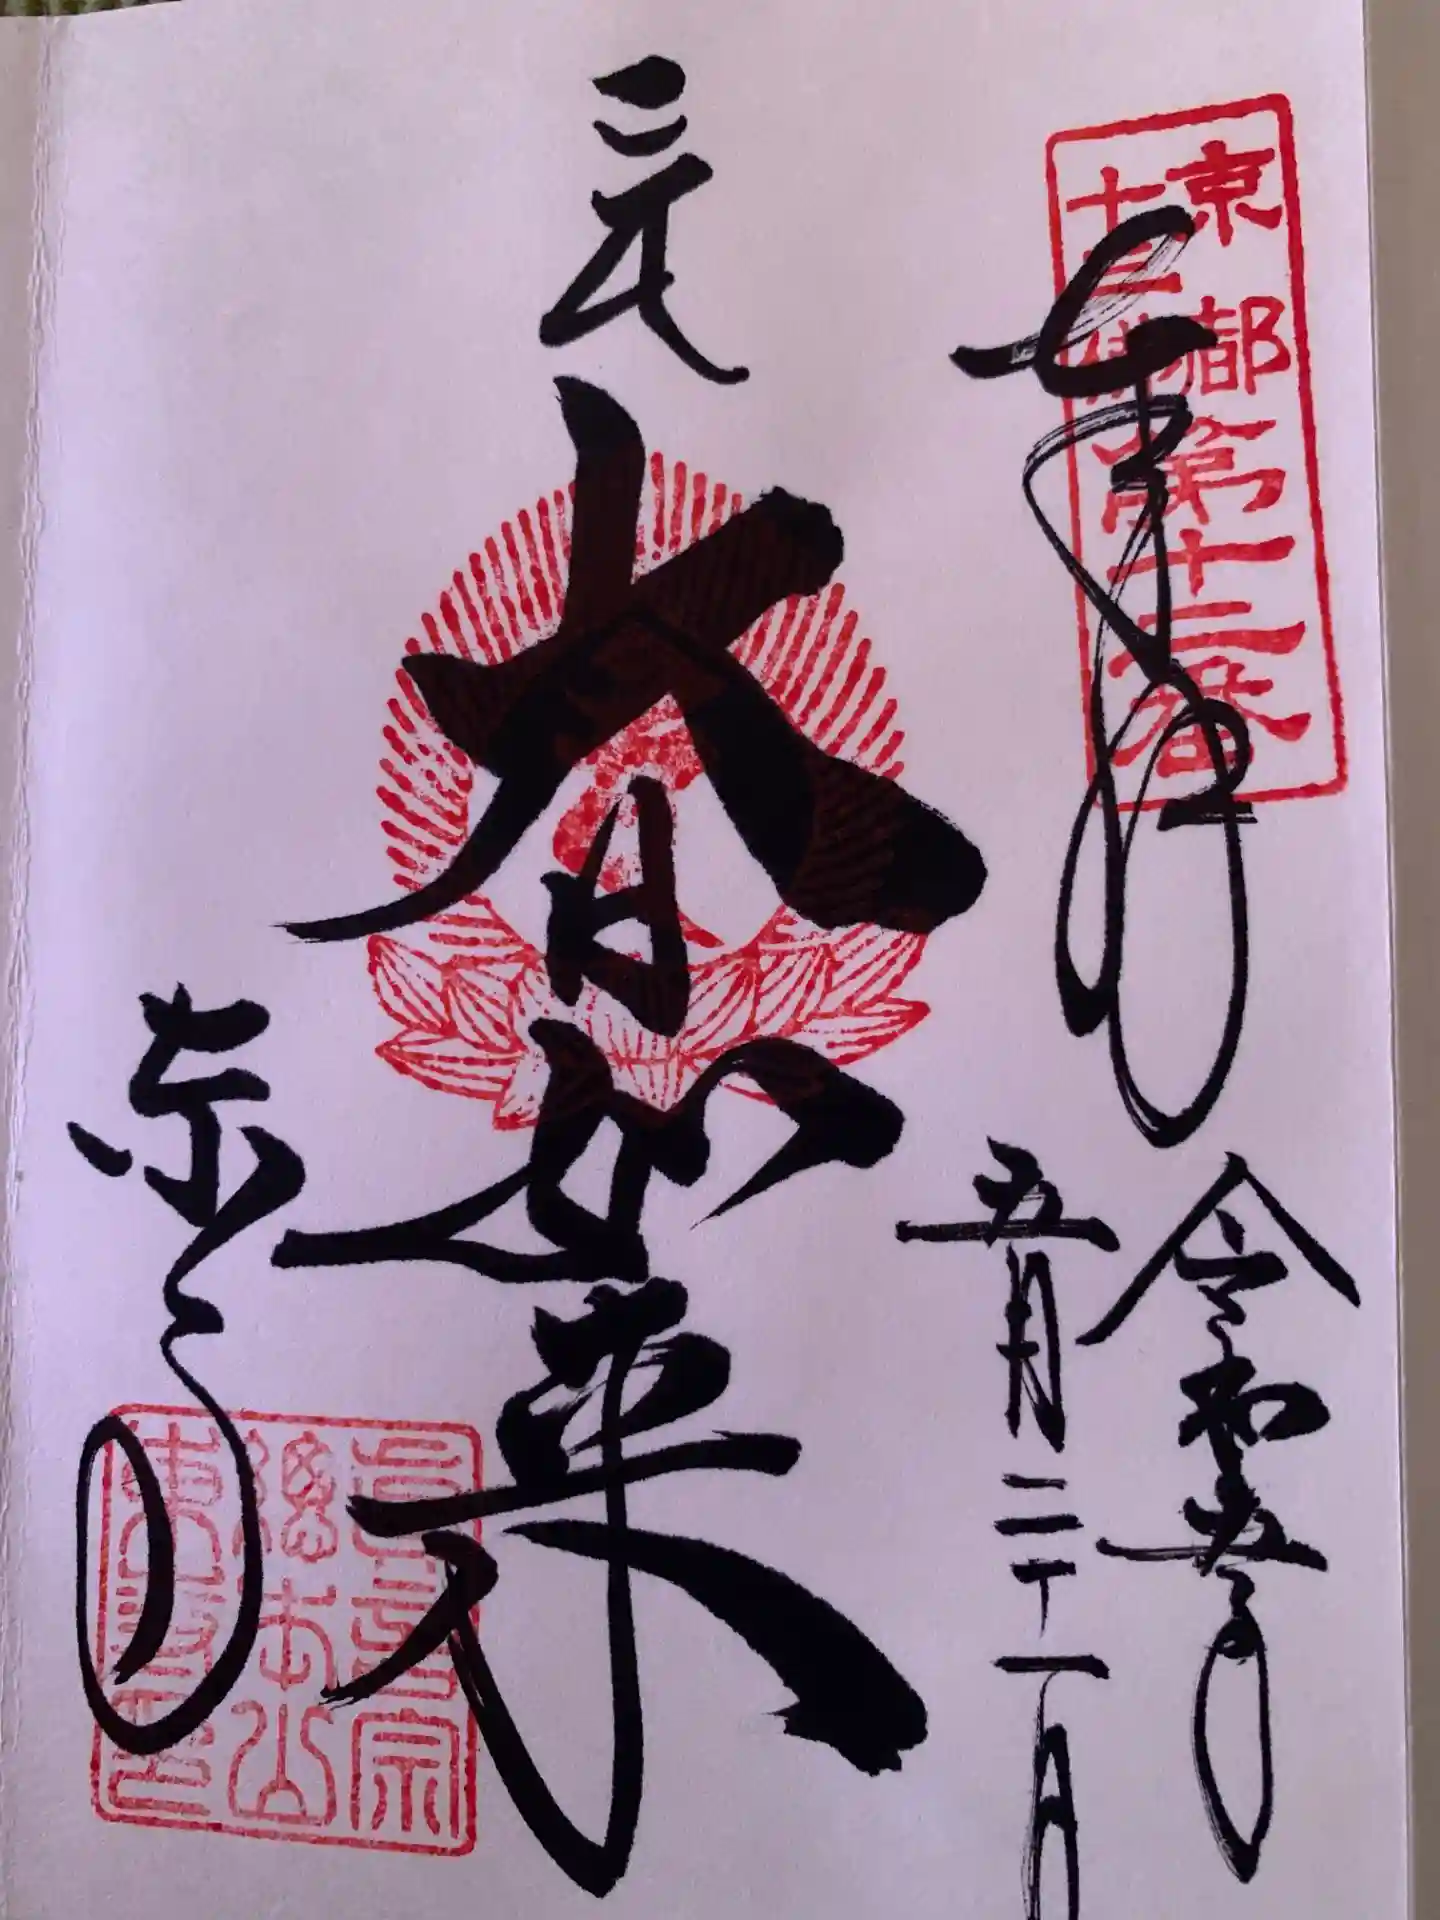 京都
十三佛第十二番
奉拝
令和五年
五月二十一日
三元
大日如来
東寺
真言宗
総本山
東寺印